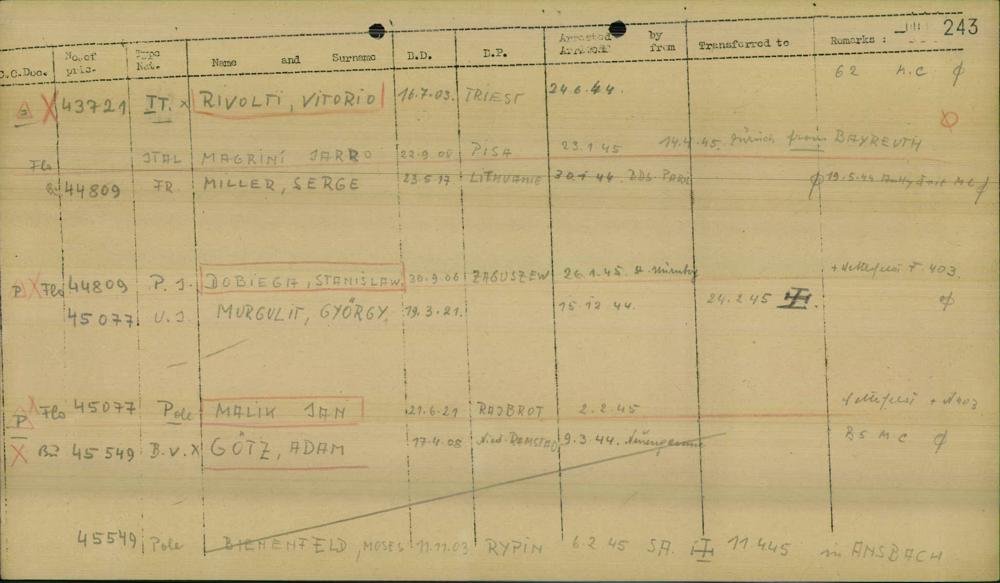 243
C.C.Doc. No.of pris. Nat. Name and Surname B.D. B.P. Arrested by from Transferred to Remarks :
62 M.C ϕ
43721 IT. x RIVOLTI, VITORIO 16.7.03. TRIEST 24.6.44.
Flo ITAL MAGRINI JARRO 22.9.08 PISA 23.1.45 14.4.45. Zürich from BAYREUTH
Bu 44809 FR. MILLER, SERGE 23.5.17 LITHUANIE 30.1.44 19.5.44 M.C ϕ
+ F 403.
P X Flo 44809 P.J. DOBIEGA, STANISLAW 30.9.06 ZABUSZEW 26.1.45. Nürnberg
45077 U.J. MURGULIT, GYÖRGY. 19.3.21. 15.12.44. 24.2.45 ϕ
P X Flo 45077 Pole MALIK JAN 21.6.21 RAJBROT 2.2.45 + N403
X Bu 45549 B.V. X GÖTZ, ADAM 17.4.08 Nied.RAMSTAD 9.3.44. Neuengamme B5 M.C ϕ
45549 Pole BIENENFELD, MOSES 11.11.03 RYPIN 6.2.45 SA. 11.4.45 in ANSBACH